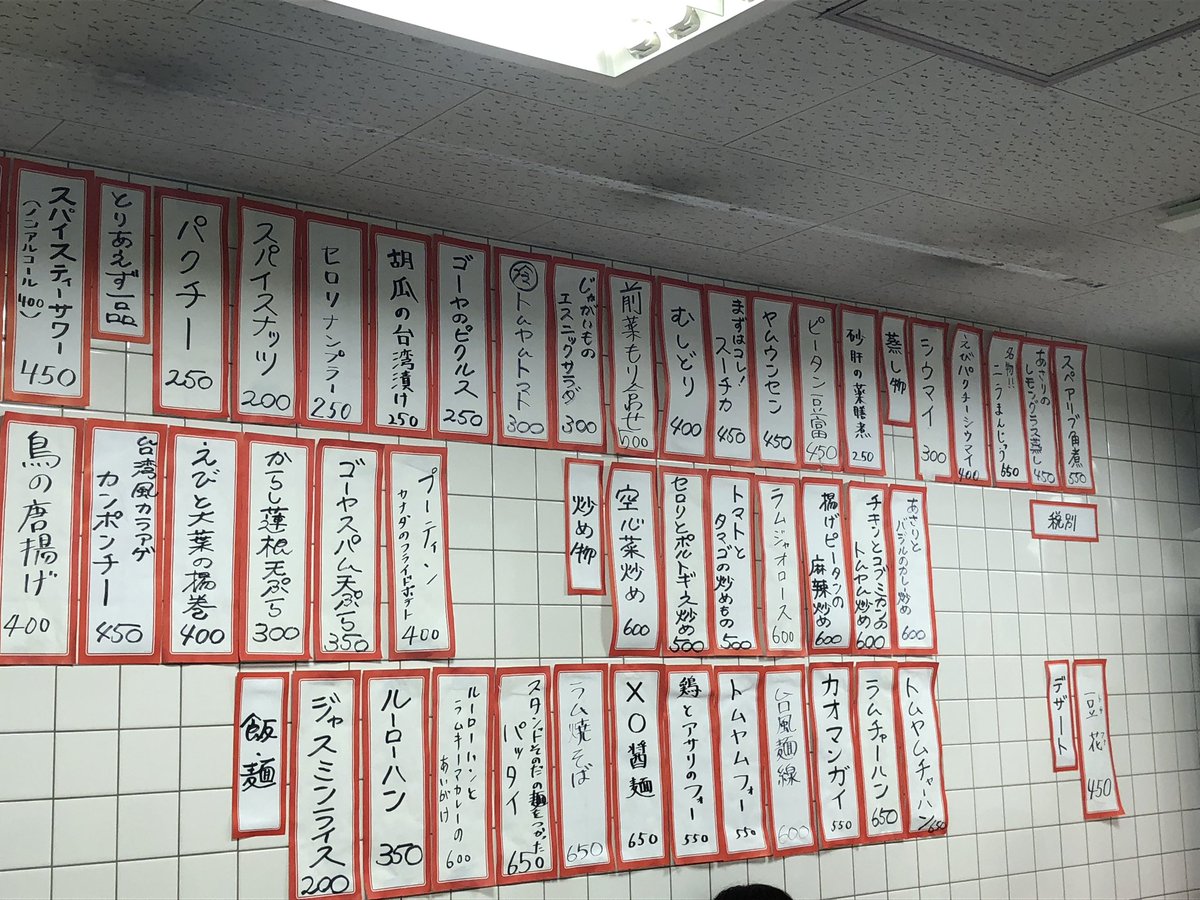 スパイスティーサワー
(ノンアルコール400)
450
とりあえず一品
パクチー
250
スパイスナッツ
200
セロリナンプラー
250
胡瓜の台湾漬け
250
ゴーヤのピクルス
250
冷トムヤムトマト
300
じゃがいもの
エスニックサラダ
300
前菜もり合わせ
500
むしどり
400
まずはコレ!
スーチカ
450
ヤムウンセン
450
ピータン豆富
450
砂肝の薬膳煮
250
蒸し物
シウマイ
300
えびパクチーシウマイ
400
名物!!
ニラまんじゅう
650
あさりの
レモングラス蒸し
450
スペアリブ角煮
550
鳥の唐揚げ
400
台湾風カラアゲ
カンポンチー
450
えびと大葉の揚巻
400
からし蓮根天ぷら
300
ゴーヤスパム天ぷら
350
プーティン
カナダのフライドポテト
400
炒め物
空心菜炒め
600
セロリとポルトギス炒め
500
トマトと
タマゴの炒めもの
500
ラムジャオロース
600
揚げピータンの
麻辣炒め
600
チキンとコブミカンの
トムヤム炒め
600
あさりと
バジルのカレー炒め
600
税別
飯・麺
ジャスミンライス
200
ルーローハン
350
ルーローハンと
ラムキーマカレーの
あいがけ
600
スタンドそのだの麺をつかった
パッタイ
650
ラム焼そば
650
XO醤麺
650
鶏とアサリのフォー
550
トムヤムフォー
550
台風麺線
600
カオマンガイ
550
ラムチャーハン
650
トムヤムチャーハン
650
デザート
豆花
450